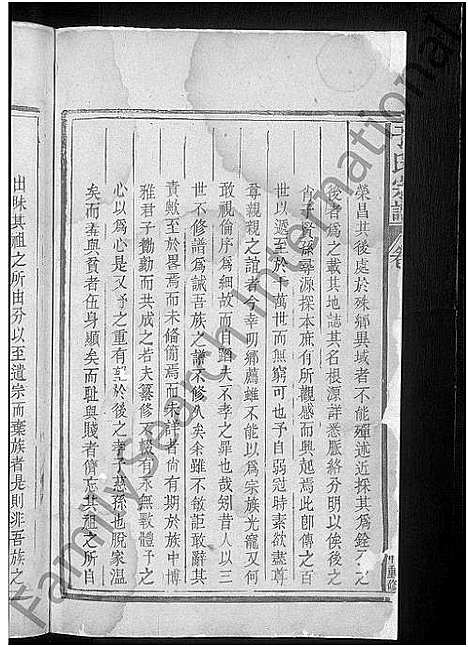 氏宗譜 卷
重修
榮昌其後處於殊鄉異域者不能殫述近採其為銓
後者為之載其地誌其名根源詳悉脈絡分明以俟後之
孝子賢孫尋源探本庶有所觀感而興起焉此卽傳之百
世以遞至於千萬世而無窮可也予自弱冠時素欲盡尊
尊親親之誼者今幸叨鄉薦雖不能以為宗族光寵又何
敢視倫序為細故而自蹈夫不孝之罪也哉矧昔人以三
世不修譜為誡吾族之譜不修久矣余雖不敏詎敢辭其
責歟至於畧焉而未備簡焉而未詳者尚有期於族中博
雅君子勷勤而共成之若夫纂修不啜有永無斁體予之
心以為心是又予之重有記於後之孝子慈孫也脫家溫
矣而羞與貧者伍身顯矣而耻與賤者儕忘其祖之所自
出昧其祖之所由分以至遺宗而棄族者是則非吾族之
FamilySearch International